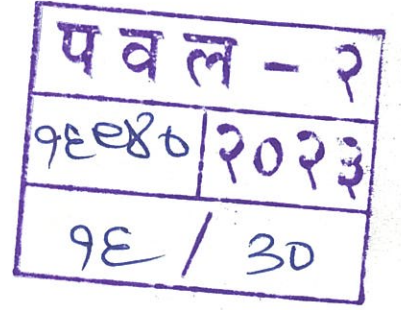 पवल - २
१६९४० २०२३
१६ / ३०